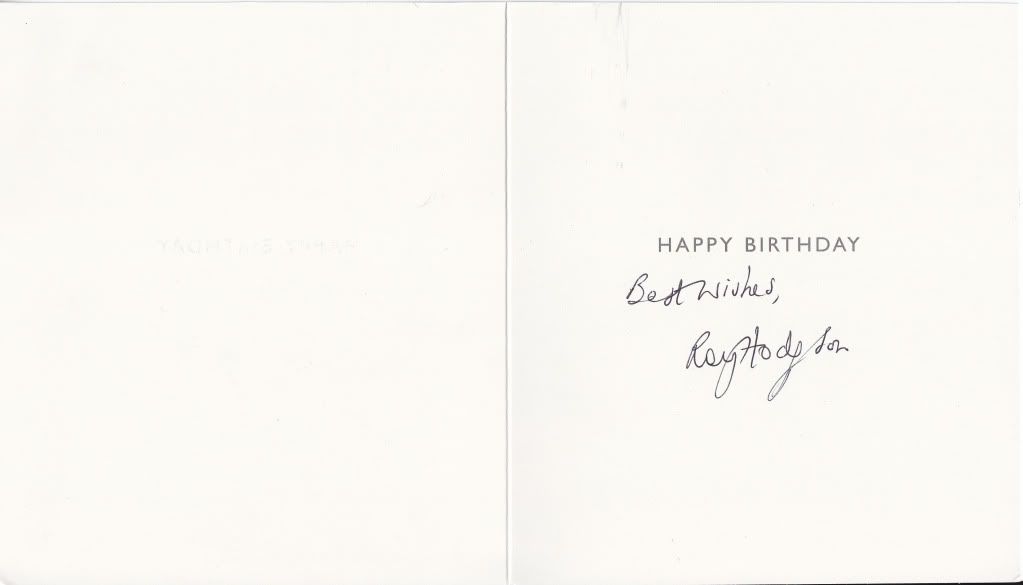 HAPPY BIRTHDAY
Best Wishes,
Roy Hodgson